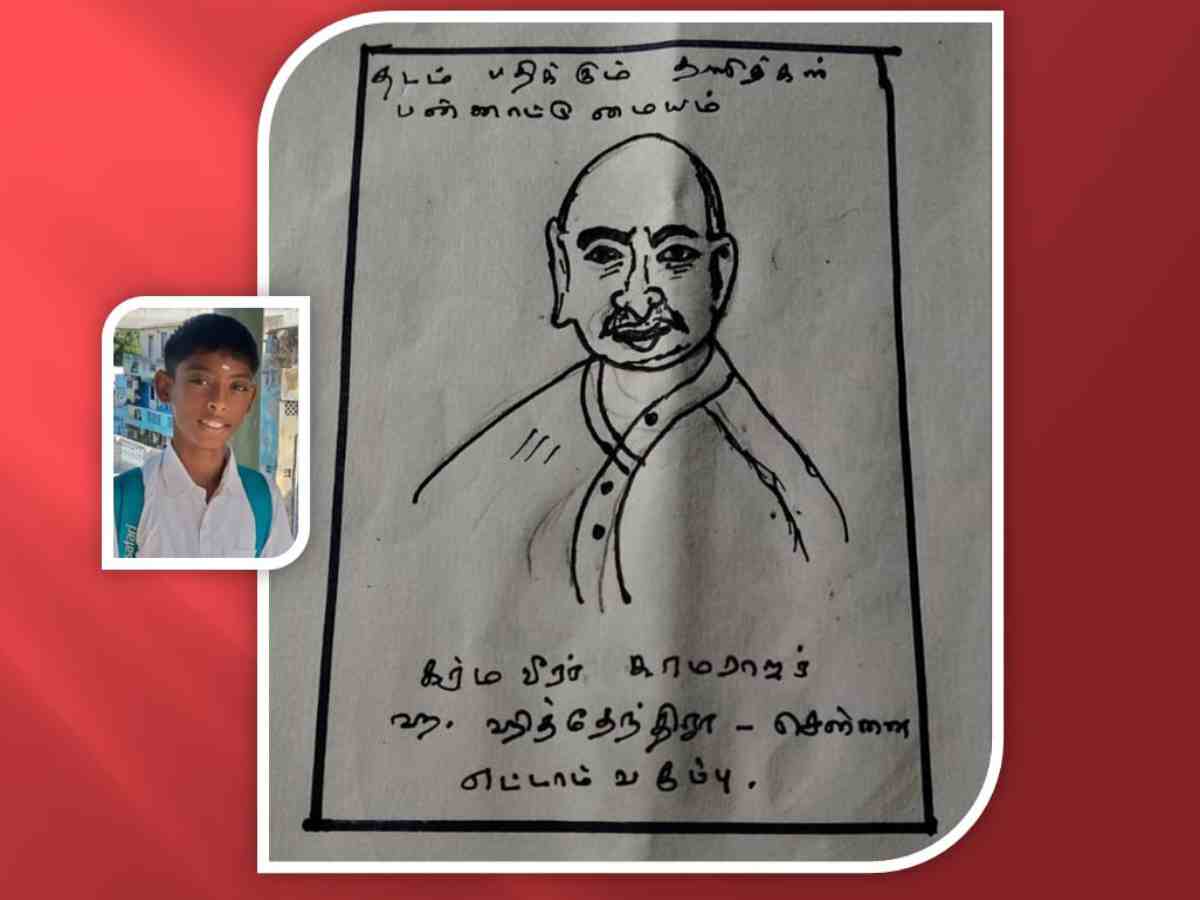 தடம் பதிக்கும் தளிர்கள்
பன்னாட்டு மையம்
கர்ம வீரர் காமராஜர்
ஹித்தேந்திரா - சென்னை
எட்டாம் வகுப்பு.
safari